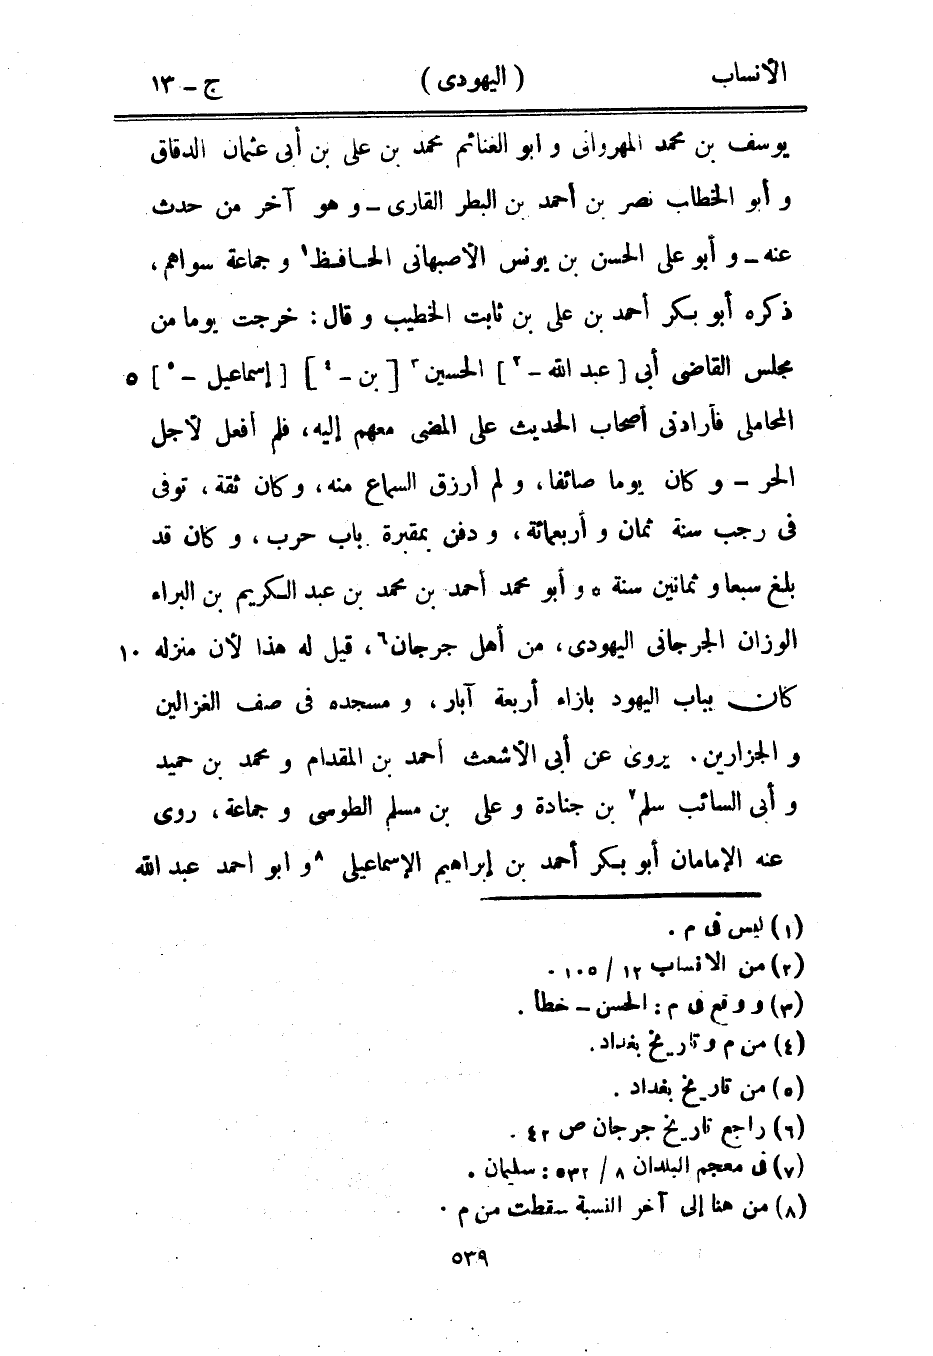 الأنساب ( اليهودى ) ج - ١٣
يوسف بن محمد المهروانى و ابو الغنائم محمد بن على بن أبى عثمان الدقاق
و أبو الخطاب نصر بن أحمد بن البطر القارى - و هو آخر من حدث
عنه - و أبو على الحسن بن يونس الأصبهانى الحافظ١ و جماعة سواهم،
ذكره أبو بكر أحمد بن على بن ثابت الخطيب و قال: خرجت يوما من
مجلس القاضى أبى [ عبد الله - ٢ ] الحسين٣ [ بن - ٤ ] [ إسماعيل - ٥ ] ٥
المحاملى فأرادنى أصحاب الحديث على المضى معهم إليه، فلم أفعل لأجل
الحر - و كان يوما صائفا، و لم أرزق السماع منه، وكان ثقة، توفى
فى رجب سنة ثمان و أربعمائة، و دفن بمقبرة باب حرب، و كان قد
بلغ سبعا و ثمانين سنة ه و أبو محمد أحمد بن محمد بن عبد الكريم بن البراء
الوزان الجرجانى اليهودى، من أهل جرجان٦، قيل له هذا لأن منزله ١٠
كان بباب اليهود بازاء أربعة آبار، و مسجده فى صف الغزالين
و الجزارين. يروى عن أبى الأشعث أحمد بن المقدام و محمد بن حميد
و أبى السائب سلم٧ بن جنادة و على بن مسلم الطوسى و جماعة، روى
عنه الإمامان أبو بكر أحمد بن إبراهيم الإسماعيلى ٨و ابو احمد عبد الله
(١) ليس فى م .
(٢) من الانساب ١٢ / ١٠٥ .
(٣) و وقع فى م : الحسن - خطأ .
(٤) من م و تاريخ بغداد.
(٥) من تاريخ بغداد .
(٦) راجع تاريخ جرجان ص ٤٢ .
(٧) فى معجم البلدان ٨ / ٥٣٢ : سليمان .
(٨) من هنا إلى آخر النسبة سقطت من م .
٥٣٩